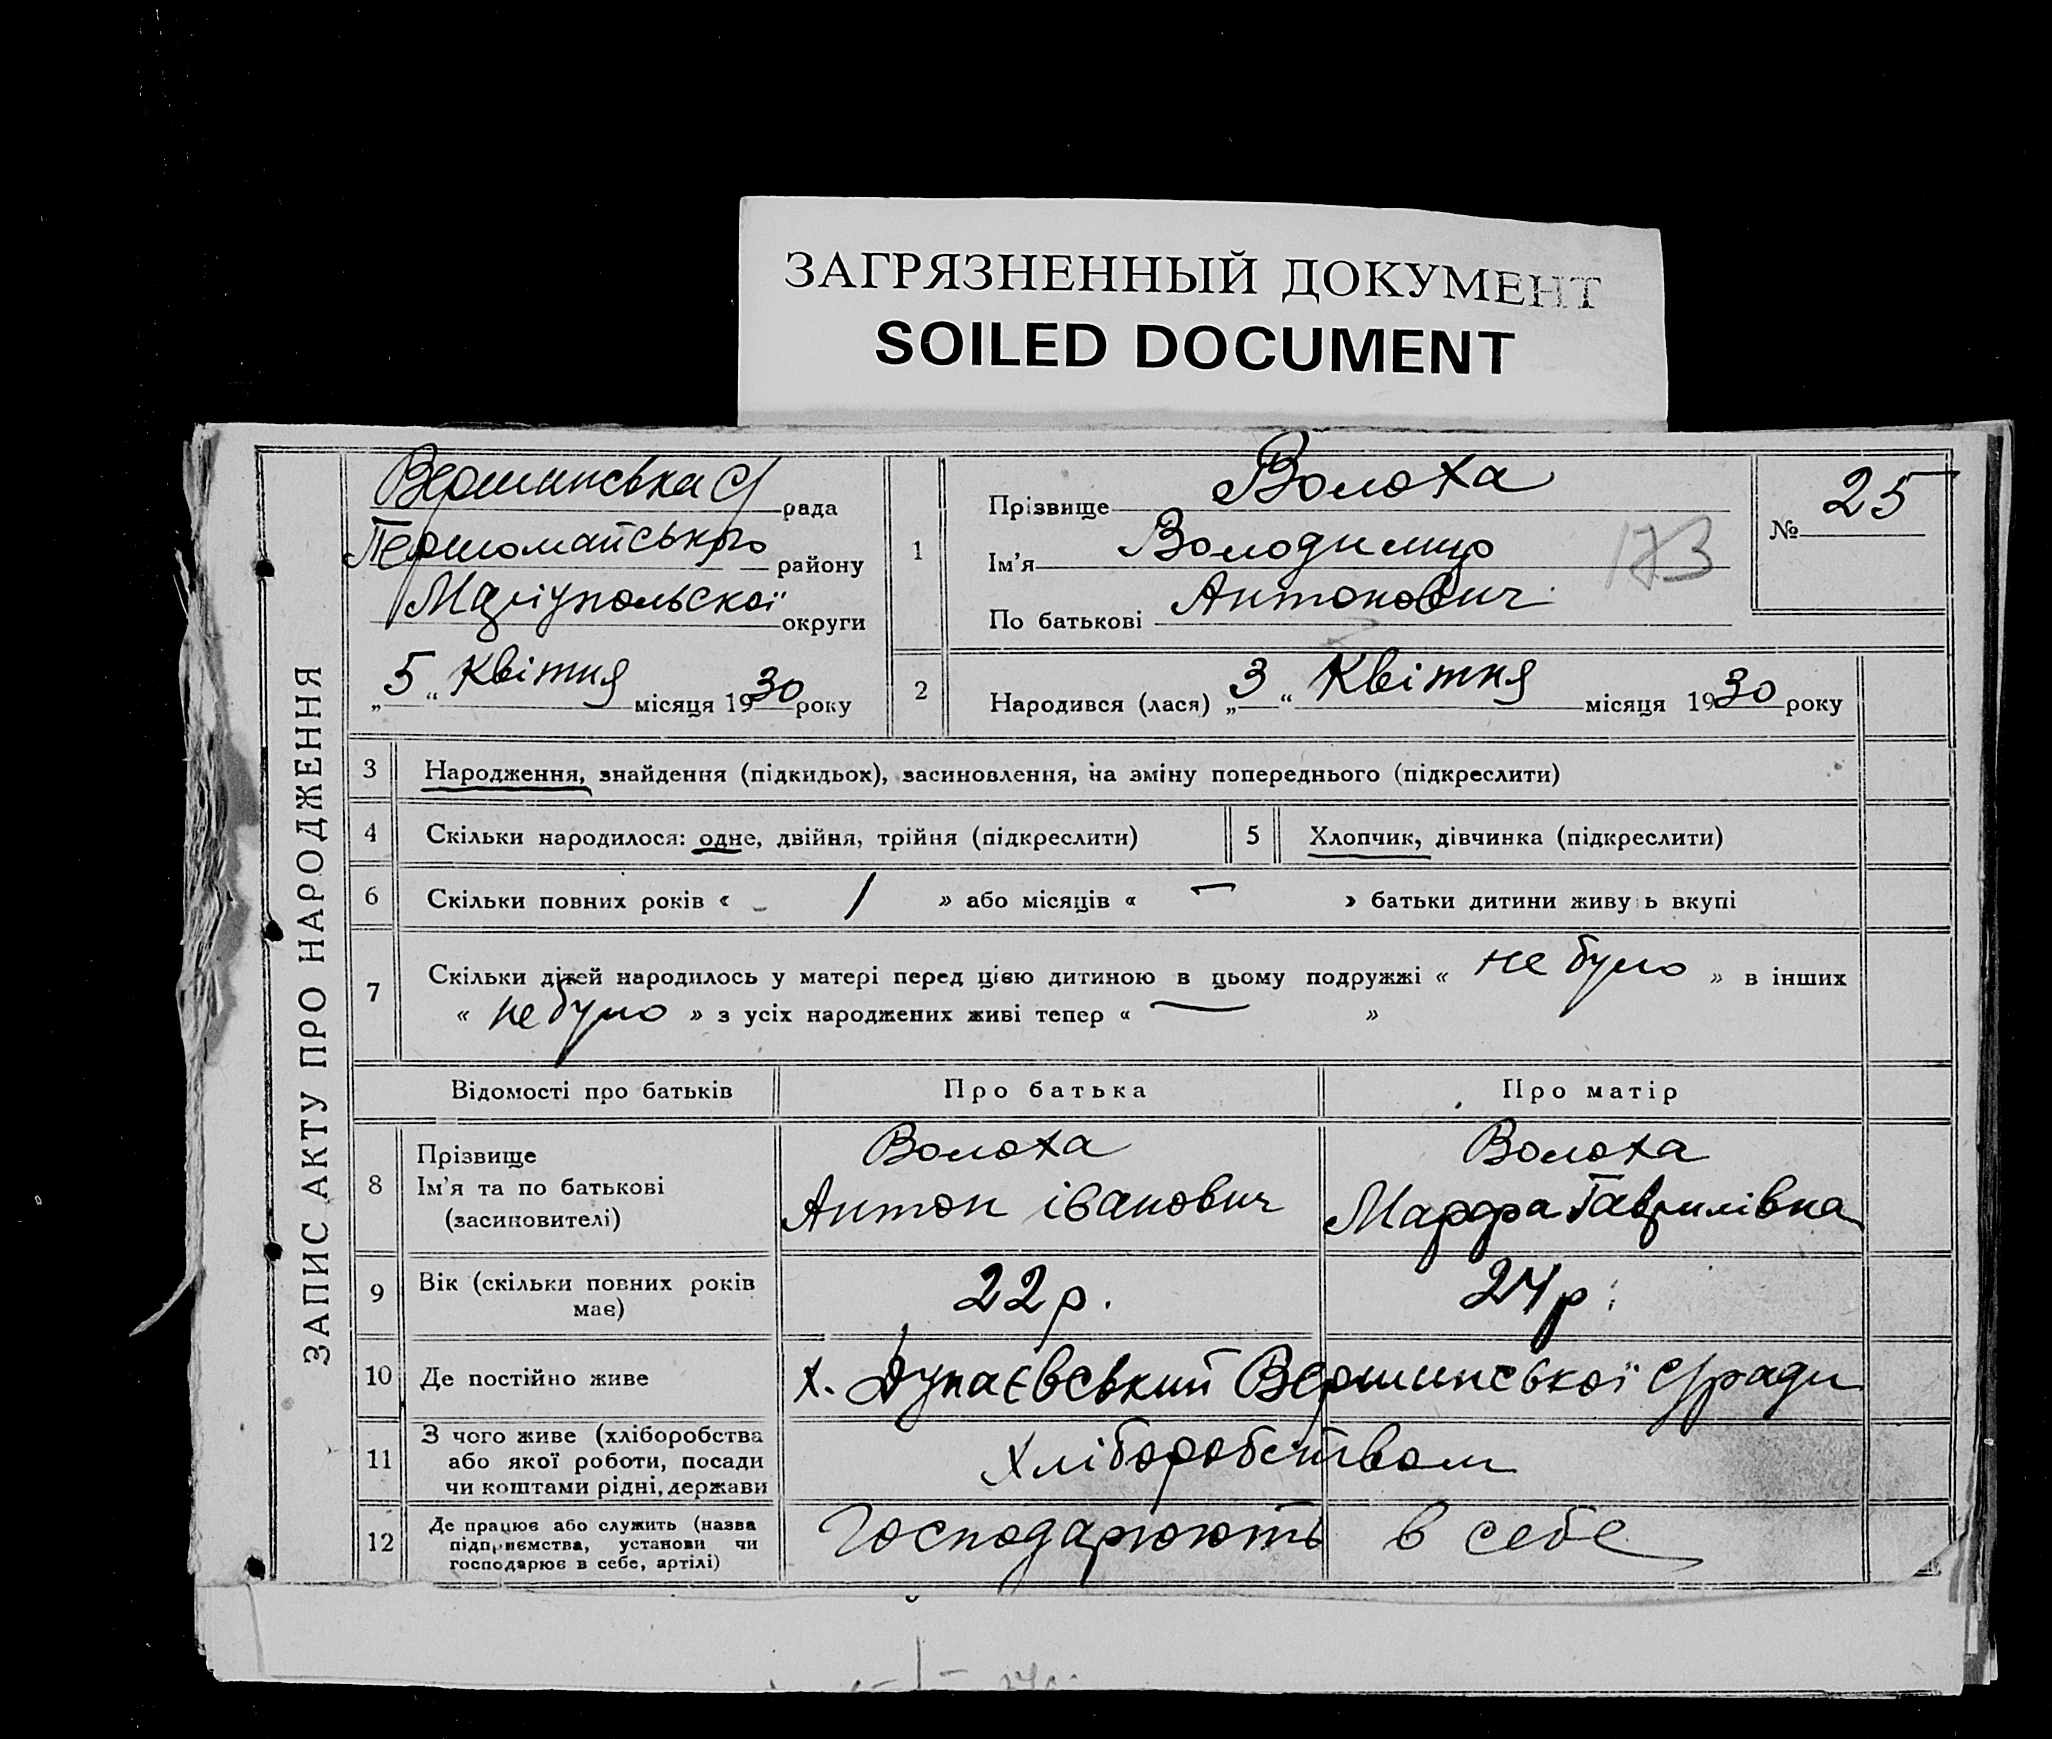 ЗАГРЯЗНЕННЫЙ ДОКУМЕНТ
SOILED DOCUMENT
ЗАПИС АКТУ ПРО НАРОДЖЕННЯ
Вершинська с/рада
Першомайського району
Маріупольскої округи
„5“ Квітня місяця 1930 року
1
Прізвище Волоха
Ім'я Володимир
По батькові Антонович
173
№ 25
2
Народився (лася) „3“ Квітня місяця 1930 року
3 Народження, знайдення (підкидьох), засиновлення, на зміну попереднього (підкреслити)
4 Скільки народилося: одне, двійня, трійня (підкреслити)
5 Хлопчик, дівчинка (підкреслити)
6 Скільки повних років « / » або місяців « — » батьки дитини живуть вкупі
7 Скільки дітей народилось у матері перед цією дитиною в цьому подружжі « не було » в інших
« не було » з усіх народжених живі тепер « — »
Відомості про батьків Про батька Про матір
8
Прізвище
Ім'я та по батькові
(засиновителі)
Волоха
Антон іванович
Волоха
Марфа Гаврилівна
9
Вік (скільки повних років
має)
22 р. 24 р.
10 Де постійно живе х. Дунаєвський Вершинської с/ради
11
З чого живе (хліборобства
або якої роботи, посади
чи коштами рідні, держави
Хліборобством
12
Де працює або служить (назва
підприємства, установи чи
господарює в себе, артілі)
Господарюють в себе